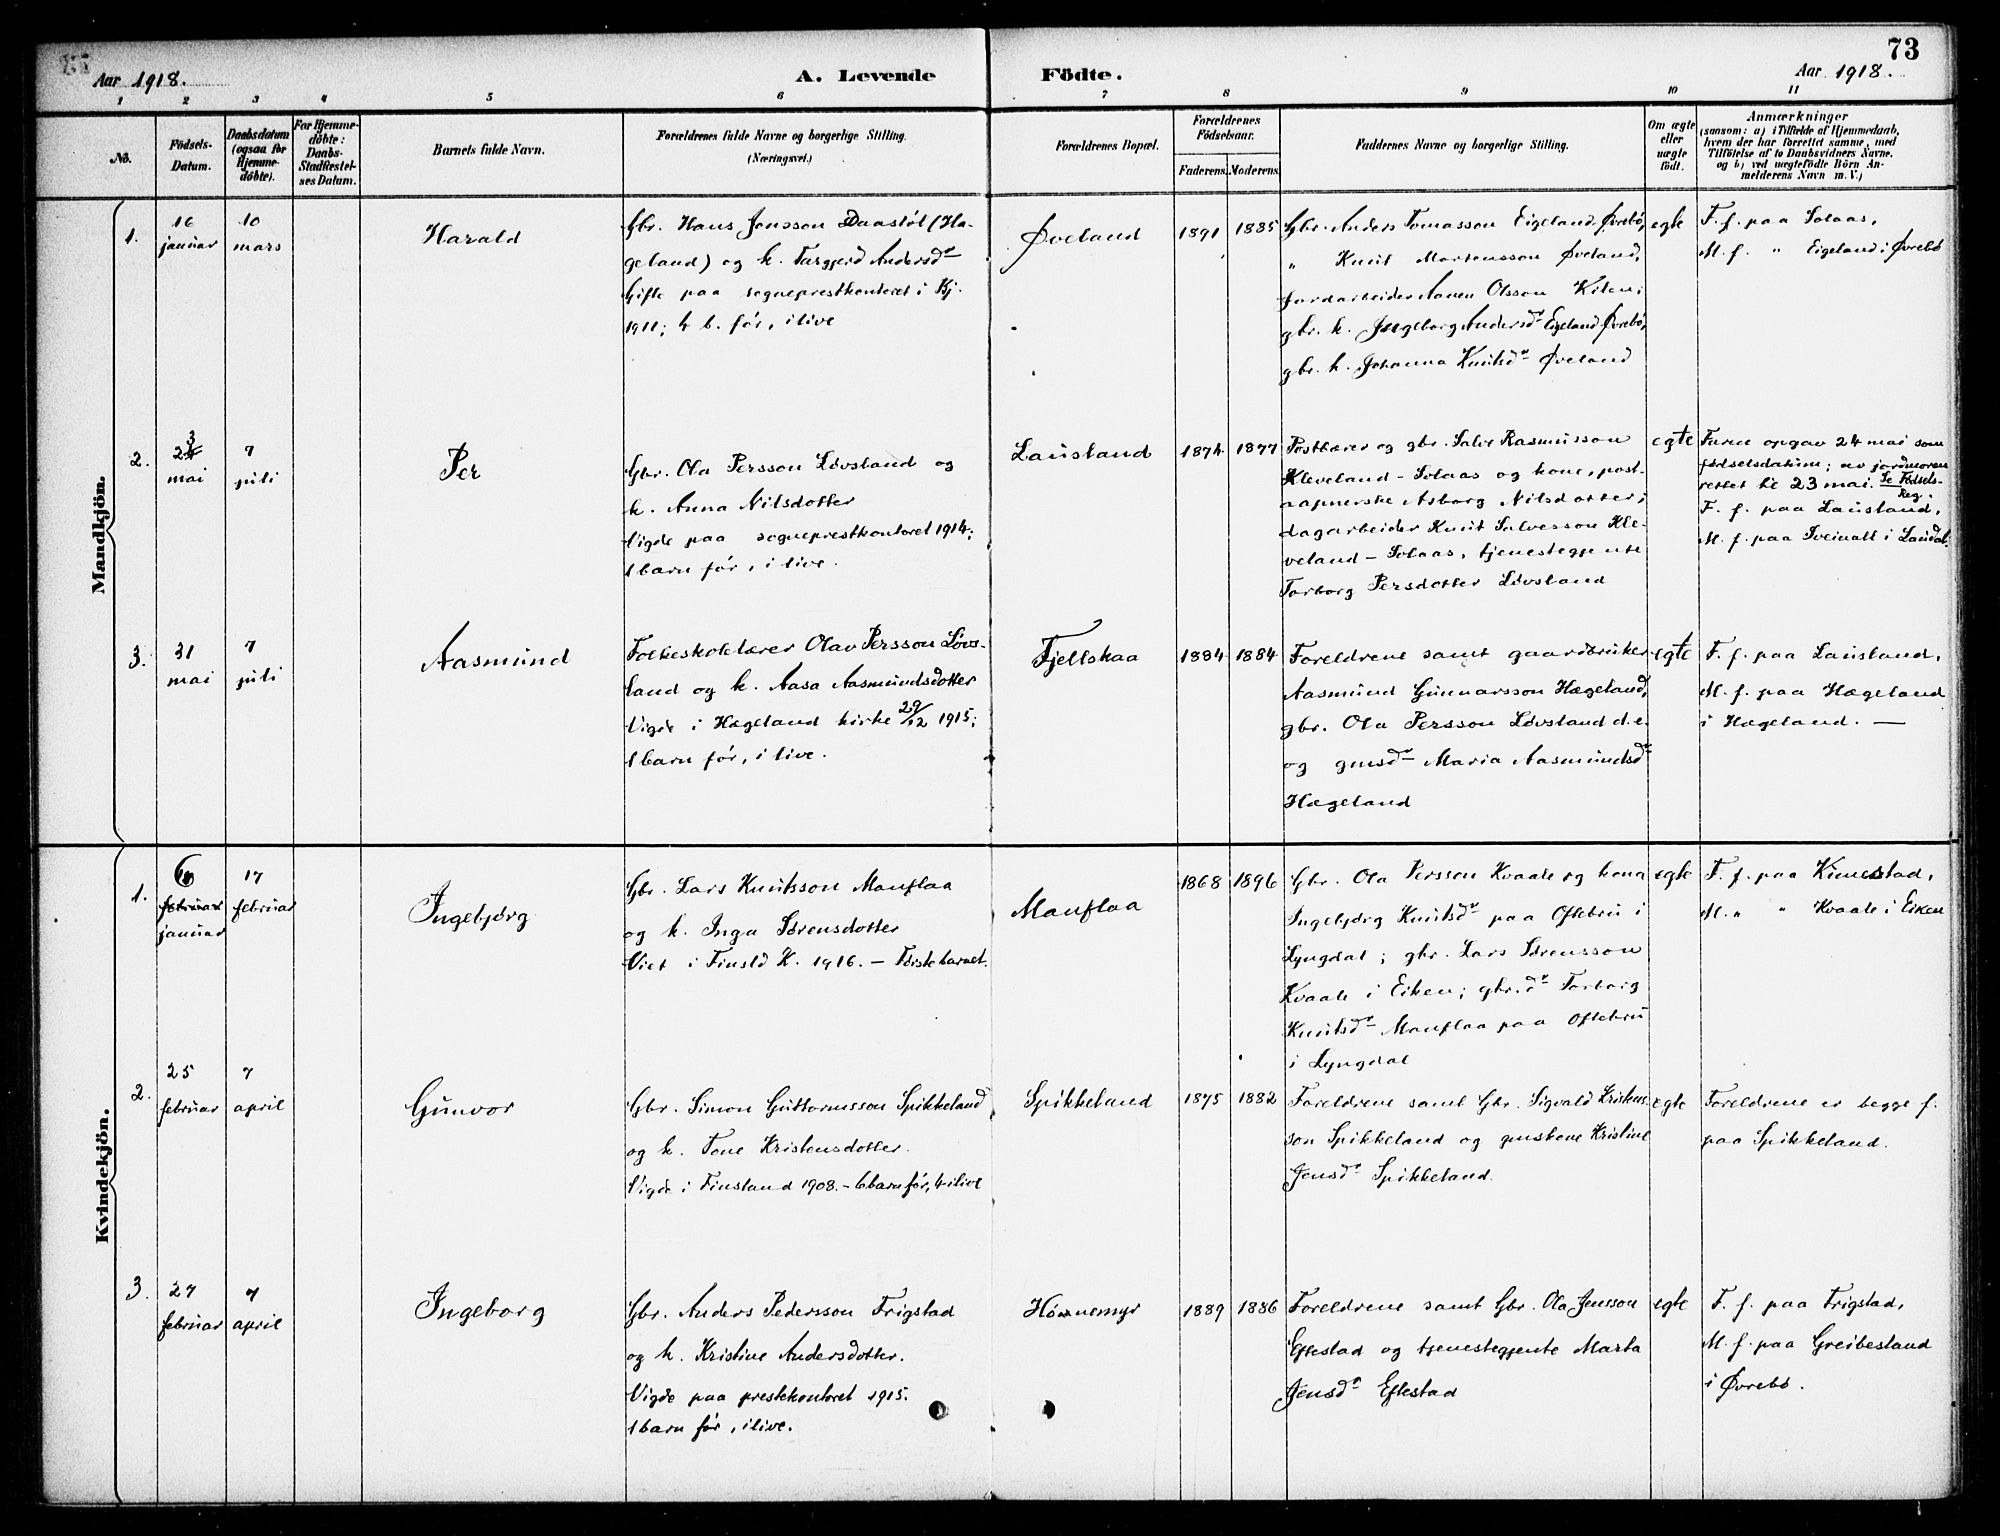 73
Aar 1918.
A. Levende Födte.
Aar 1918.
1 2 3 4 5 6 7 8 9 10 11
No.
Födsels-
Datum.
Daabsdatum
(ogsaa for
Hjemme-
döbte).
For Hjemme-
döbte:
Daabs-
Stadfæstel-
ses Datum.
Barnets fulde Navn.
Forældrenes fulde Navne og borgerlige Stilling.
(Næringsvei.)
Forældrenes Bopæl.
Forældrenes
Födselsaar.
Faderens. Moderens.
Faddernes Navne og borgerlige Stilling.
Om ægte
eller
uægte
födt.
Anmærkninger
(saasom: a) i Tilfælde af Hjemmedaab,
hvem der har forrettet samme, med
Tilföielse af to Daabsvidners Navne,
og b) ved uægtefödte Börn An-
melderens Navn m. V.)
Mandkjön.
1.
16
januar
10
mars
Harald
Gbr. Hans Jonsson Daastøl (Ha-
geland) og k. Targjerd Andersd.
Gifte paa sogneprestkontoret i Kj.
1911; 4 b. før, i live
Øveland
1891 1885
Gbr. Anders Tomasson Eigeland, Øvrebø,
" Knut Mortensson Øveland,
Jordarbeider Aanen Olsson Kilen;
gbr. k. Ingeborg Andersd. Eigeland, Øvrebø,
gbr. k. Johanna Knutsd. Øveland
egte
F. f. paa Solaas,
M. f. " Eigeland i Øvrebø
2.
23
mai
7
juli
Per
Gbr. Ola Persson Løvsland og
k. Anna Nilsdotter
Vigde paa sogneprestkontoret 1914;
1 barn før, i live.
Lausland
1874 1877
Postbærer og gbr. Salve Rasmusson
Kleveland - Solaas og kone, post-
aapnerske Asborg Nilsdotter;
dagarbeider Knut Salvesson Kle-
veland - Solaas, tjenestegjente
Torborg Persdotter Løvsland
egte
Faren opgav 24 mai som
fødselsdatum; av jordmoren
rettet til 23 mai. Se Fødsels-
Reg.
F. f. paa Lausland,
M. f. paa Sveinall i Laudal.
3.
31
mai
7
juli
Aasmund
Folkeskolelærer Olav Persson Løvs-
land og k. Aasa Aasmundsdotter
Vigde i Hægeland kirke 29/12 1915;
1 barn før, i live.
Fjellskaa
1884 1884
Foreldrene samt gaardbruker
Aasmund Gunnarsson Hægeland,
gbr. Ola Persson Løvsland d. e.
og gmsd. Maria Aasmundsd.
Hægeland
egte
F. f. paa Lausland,
M. f. paa Hægeland
i Hægeland. —
Kvindekjön.
1.
6
februar
januar
17
februar
Ingebjørg
Gbr. Lars Knutsson Manflaa
og k. Inga Sørensdotter
Viet i Finsld K. 1916. - Første barnet.
Manflaa
1868 1896
Gbr. Ola Persson Kvaale og kona
Ingebjørg Knutsd. paa Oftebru i
Lyngdal; gbr. Lars Sørensson
Kvaale i Eiken; gbr.d. Torborg
Knutsd. Manflaa paa Oftebru
i Lyngdal
egte
F. f. paa Kinnestad,
M. " " Kvaale i Eiken
2.
25
februar
7
april
Gunvor
Gbr. Simon Guttormsson Spikkeland
og k. Tone Kristensdotter.
Vigde i Finsland 1908. - 6 barn før, 4 i live
Spikkeland
1875 1882
Foreldrene samt Gbr. Sigvald Kristens-
son Spikkeland og gmskone Kristine
Jensd. Spikkeland.
egte
Foreldrene er begge f.
paa Spikkeland.
3.
27
februar
7
april
Ingeborg
Gbr. Anders Pedersson Frigstad
og k. Kristine Andersdotter.
Vigde paa prestekontoret 1915.
1 barn før, i live.
Hønnemyr
1889 1886
Foreldrene samt Gbr. Ola Jensson
Eftestad og tjenestegjente Marta
Jensd. Eftestad
egte
F. f. paa Frigstad,
M. f. paa Greibesland
i Øvrebø.